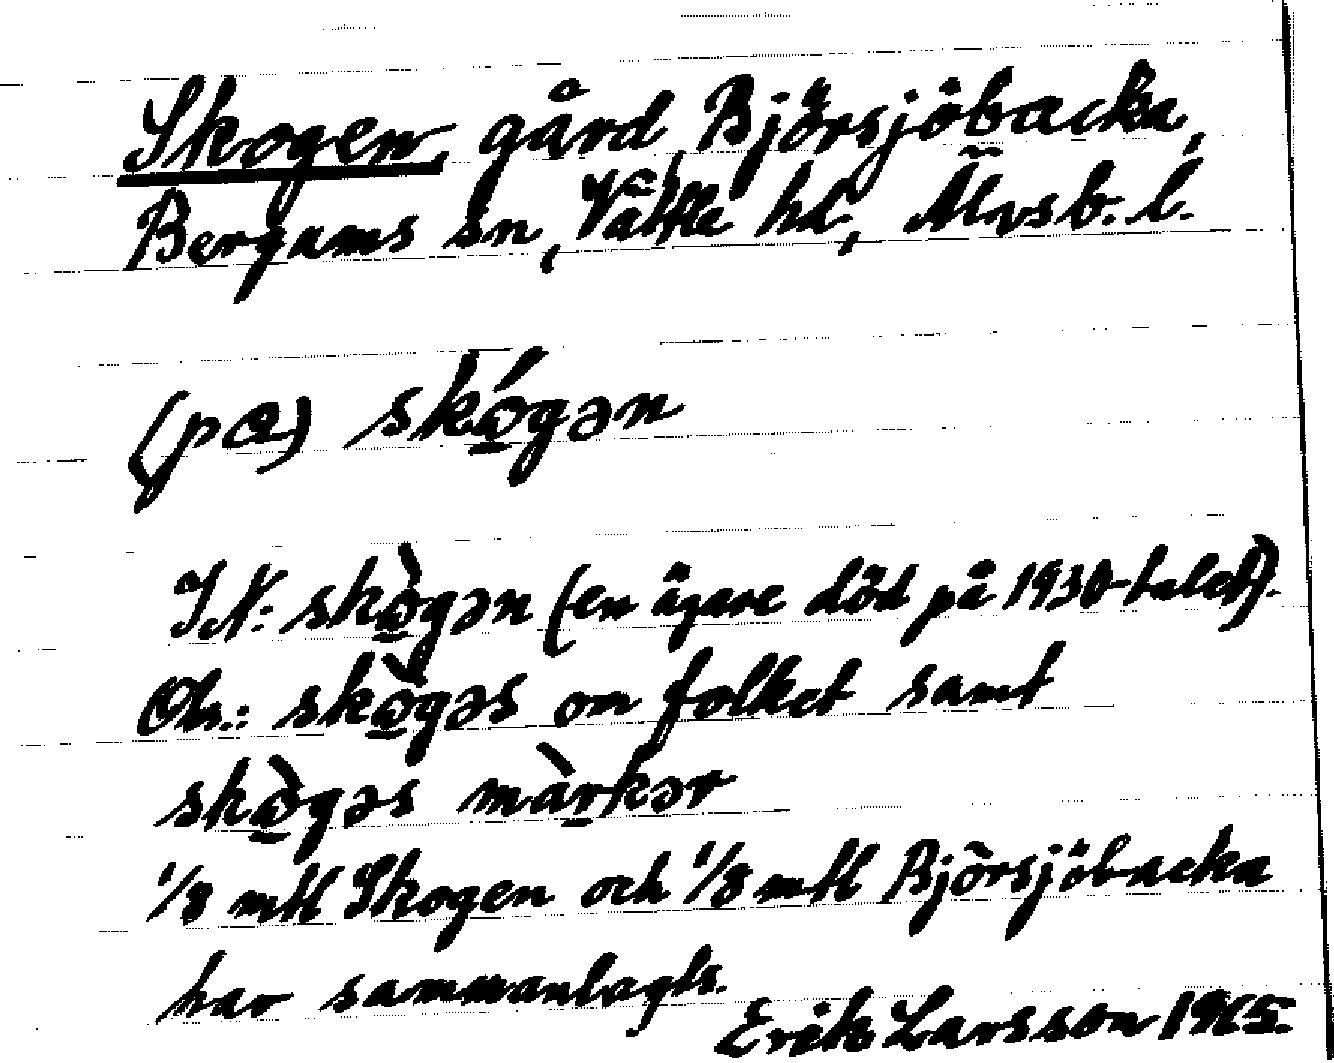 Skogen, gård, Björsjöbacka,
Bergums sn, Vättle hd, Älvsb. l.
(på) skó̱gən
IN: skò̱gən (en ägare död på 1930-talet).
Obs.: skò̱gəs om folket samt
skò̱gəs màrkər
1/8 mtl Skogen och 1/8 mtl Björsjöbacka
har sammanlagts.
Erik Larsson 1965.